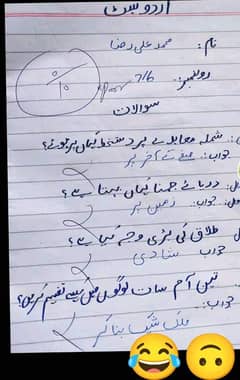 اردو ٹیسٹ
نام: محمد علی رضا
رولنمبر: 7/6
0/10
سوالات
شملہ معاہدے پر دستخط کہاں پر ہوئے؟
جواب: صفحے کے آخر پر
دریائے جمنا کہاں بہتا ہے؟
جواب: زمین پر
طلاق کی بڑی وجہ کیا ہے؟
جواب شادی
تین آم سات لوگوں میں کیسے تقسیم کریں؟
جواب: ملک شیک بنا کر